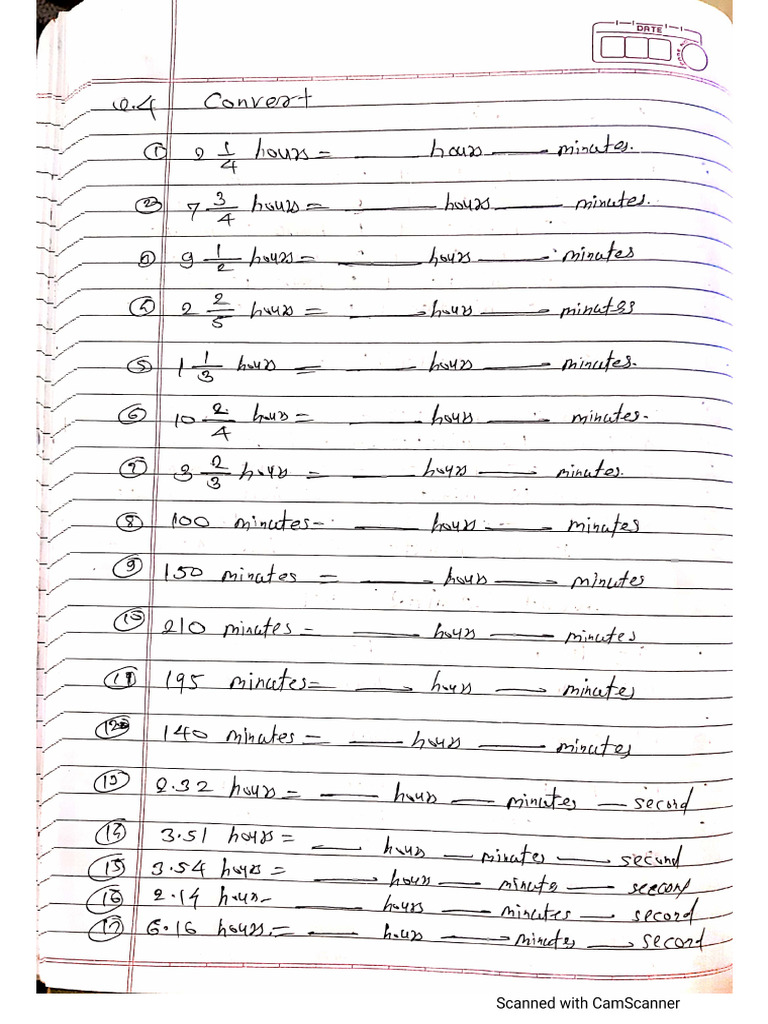 DATE
Q.4 Convert
① 2 1/4 hours = ___ hours ___ minutes.
② 7 3/4 hours = ___ hours ___ minutes.
③ 9 1/2 hours = ___ hours ___ minutes
④ 2 2/5 hours = ___ hours ___ minutes
⑤ 1 1/3 hours = ___ hours ___ minutes.
⑥ 10 2/4 hours = ___ hours ___ minutes.
⑦ 3 2/3 hours = ___ hours ___ minutes.
⑧ 100 minutes - ___ hours ___ minutes
⑨ 150 minutes = ___ hours ___ minutes
⑩ 210 minutes = ___ hours ___ minutes
⑪ 195 minutes = ___ hours ___ minutes
⑫ 140 minutes = ___ hours ___ minutes
⑬ 2.32 hours = ___ hours ___ minutes ___ second
⑭ 3.51 hours = ___ hours ___ minutes ___ second
⑮ 3.54 hours = ___ hours ___ minute ___ second
⑯ 2.14 hour - ___ hours ___ minutes ___ second
⑰ 6.16 hours. = ___ hours ___ minutes ___ second
Scanned with CamScanner